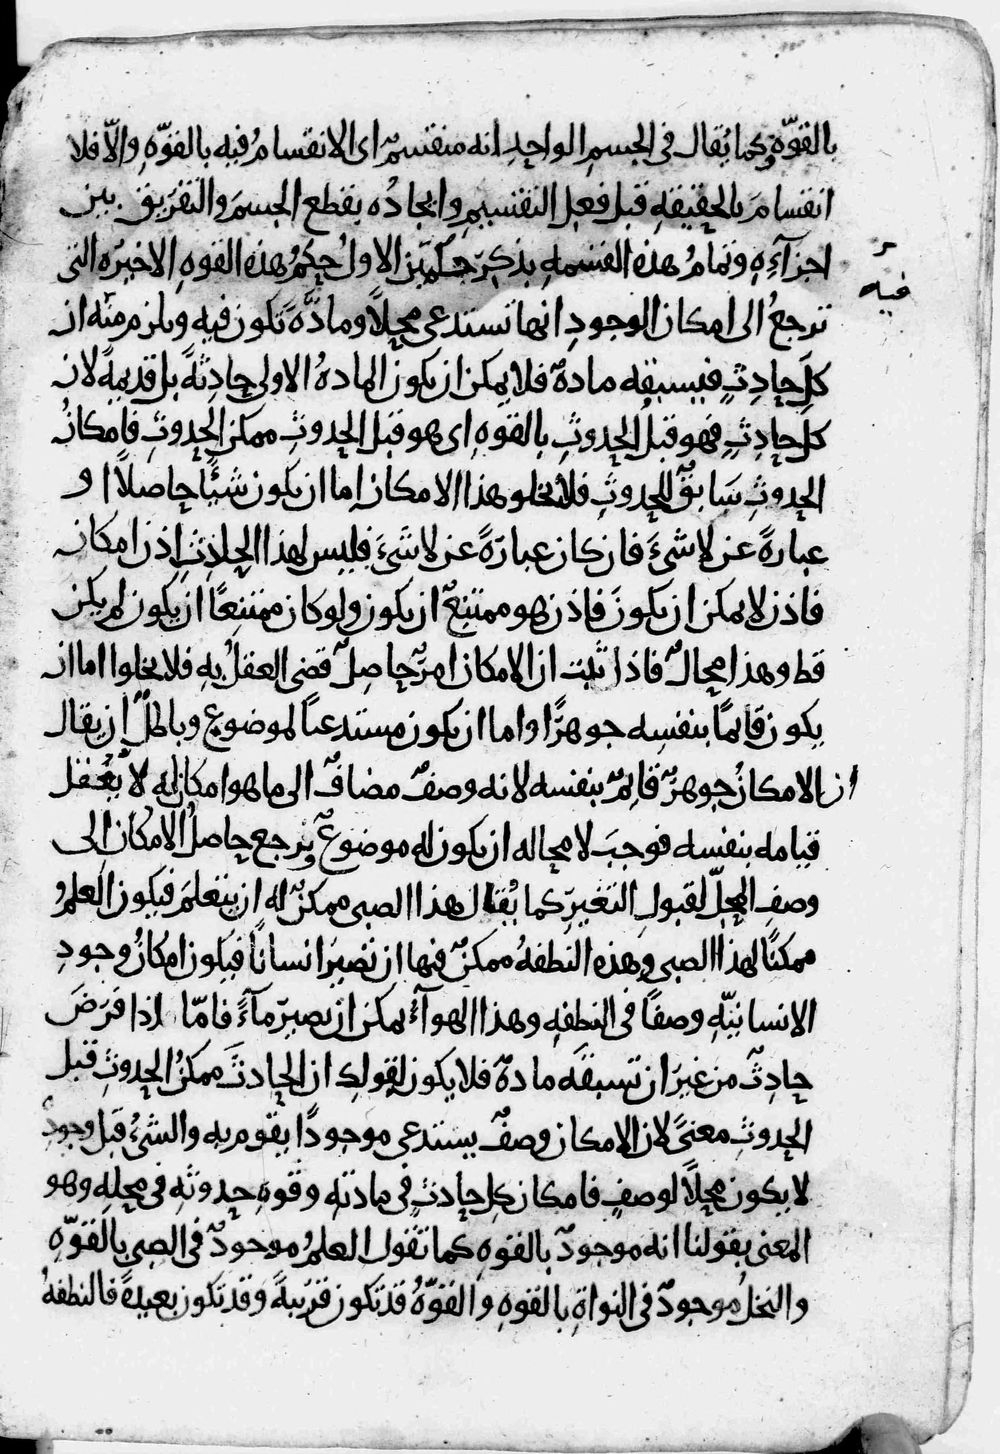 بالقوّة وكما يُقال في الجسمِ الواحدِ انه منقسمٌ اى الانقسامُ فيه بالقوّةِ والّا فلا
انقسامَ بالحقيقةِ قبل فعلِ التقسيمِ وايجادُه بقطع الجسمَ والتفريق بين
اجزآءِهِ وتمامُ هذه القسمةِ بذكرِ حكمين الاولُ حكمُ هذه القوةِ الاخيرةِ التى
ترجعُ الى امكان الوجودِ انها تستدعى محلًا ومادّةً تكون فيه ويلزم منه ان
فيه
كلّ حادثٍ فيسبقه مادةٌ فلا يمكن ان يكون المادةُ الاولى حادِثةً بل قديمةً لان
كلّ حادِثٍ فهو قبلَ الحدوثِ بالقوةِ اى هو قبل الحدوثِ ممكن الحدوثِ فامكانُ
الحدوثِ سَابقٌ للحدوثِ فلا يخلو هذا الامكان اما ان يكون شيئًا حاصلًا او
عبارةً عن لا شىءَ فان كان عبارةً عن لا شىءَ فليس لهذا الحادِثِ اذن امكان
فاذن لا يمكن ان يكونَ فاذن هو ممتنعٌ ان يكون ولو كان ممتنعًا ان يكون لم يكن
قط وهذا محالٌ فاذا ثبت ان الامكان امرٌ حاصِلٌ قضى العقلُ به فلا يخلوا اما ان
يكون قائمًا بنفسِه جوهرًا واما ان يكون مستدعيًا لموضوعٍ وباطلٌ ان يقال
ان الامكانُ جوهرٌ قائمٌ بنفسه لانه وصفٌ مضافٌ الى ما هو امكان له لا يُعقل
قيامه بنفسه فوجبَ لا محاله ان يكون له موضوعٌ ويرجع حاصلُ الامكان الى
وصفِ المحلِّ لقبولِ التغيّرِ كما يُقال هذا الصبى ممكنٌ له ان يتعلمَ فيكون العلمُ
ممكنًا لهذا الصبى وهذه النطفةُ ممكنٌ فيها ان تصيرَ انسانًا فيكون امكانُ وجودِ
الانسانيّةِ وصفًا فى النطفةِ وهذا الهوآءُ يمكن ان يصيرَ مآءً فامّا اذا فرَضَ
حادِثٌ من غير ان تسبقَه مادةٌ فلا يكون لقولك ان الحادثَ ممكنُ الحدوثِ قبل
الحدوثِ معنىً لان الامكان وصفٌ يستدعى موجودًا يقوم به والشىءُ قبل وجودِه
لا يكون محلًا لوصفٍ فامكان كل حادثٍ فى مادتِه وقوةِ حدوثه فى محلهِ وهو
المعنى بقولنا انه موجودٌ بالقوةِ كما تقول العلمُ موجودٌ فى الصبى بالقوّةِ
والنخلُ موجودٌ فى النواةِ بالقوةِ والقوّةُ قد تكون قريبةً وقد تكون بعيدةً فالنطفةُ